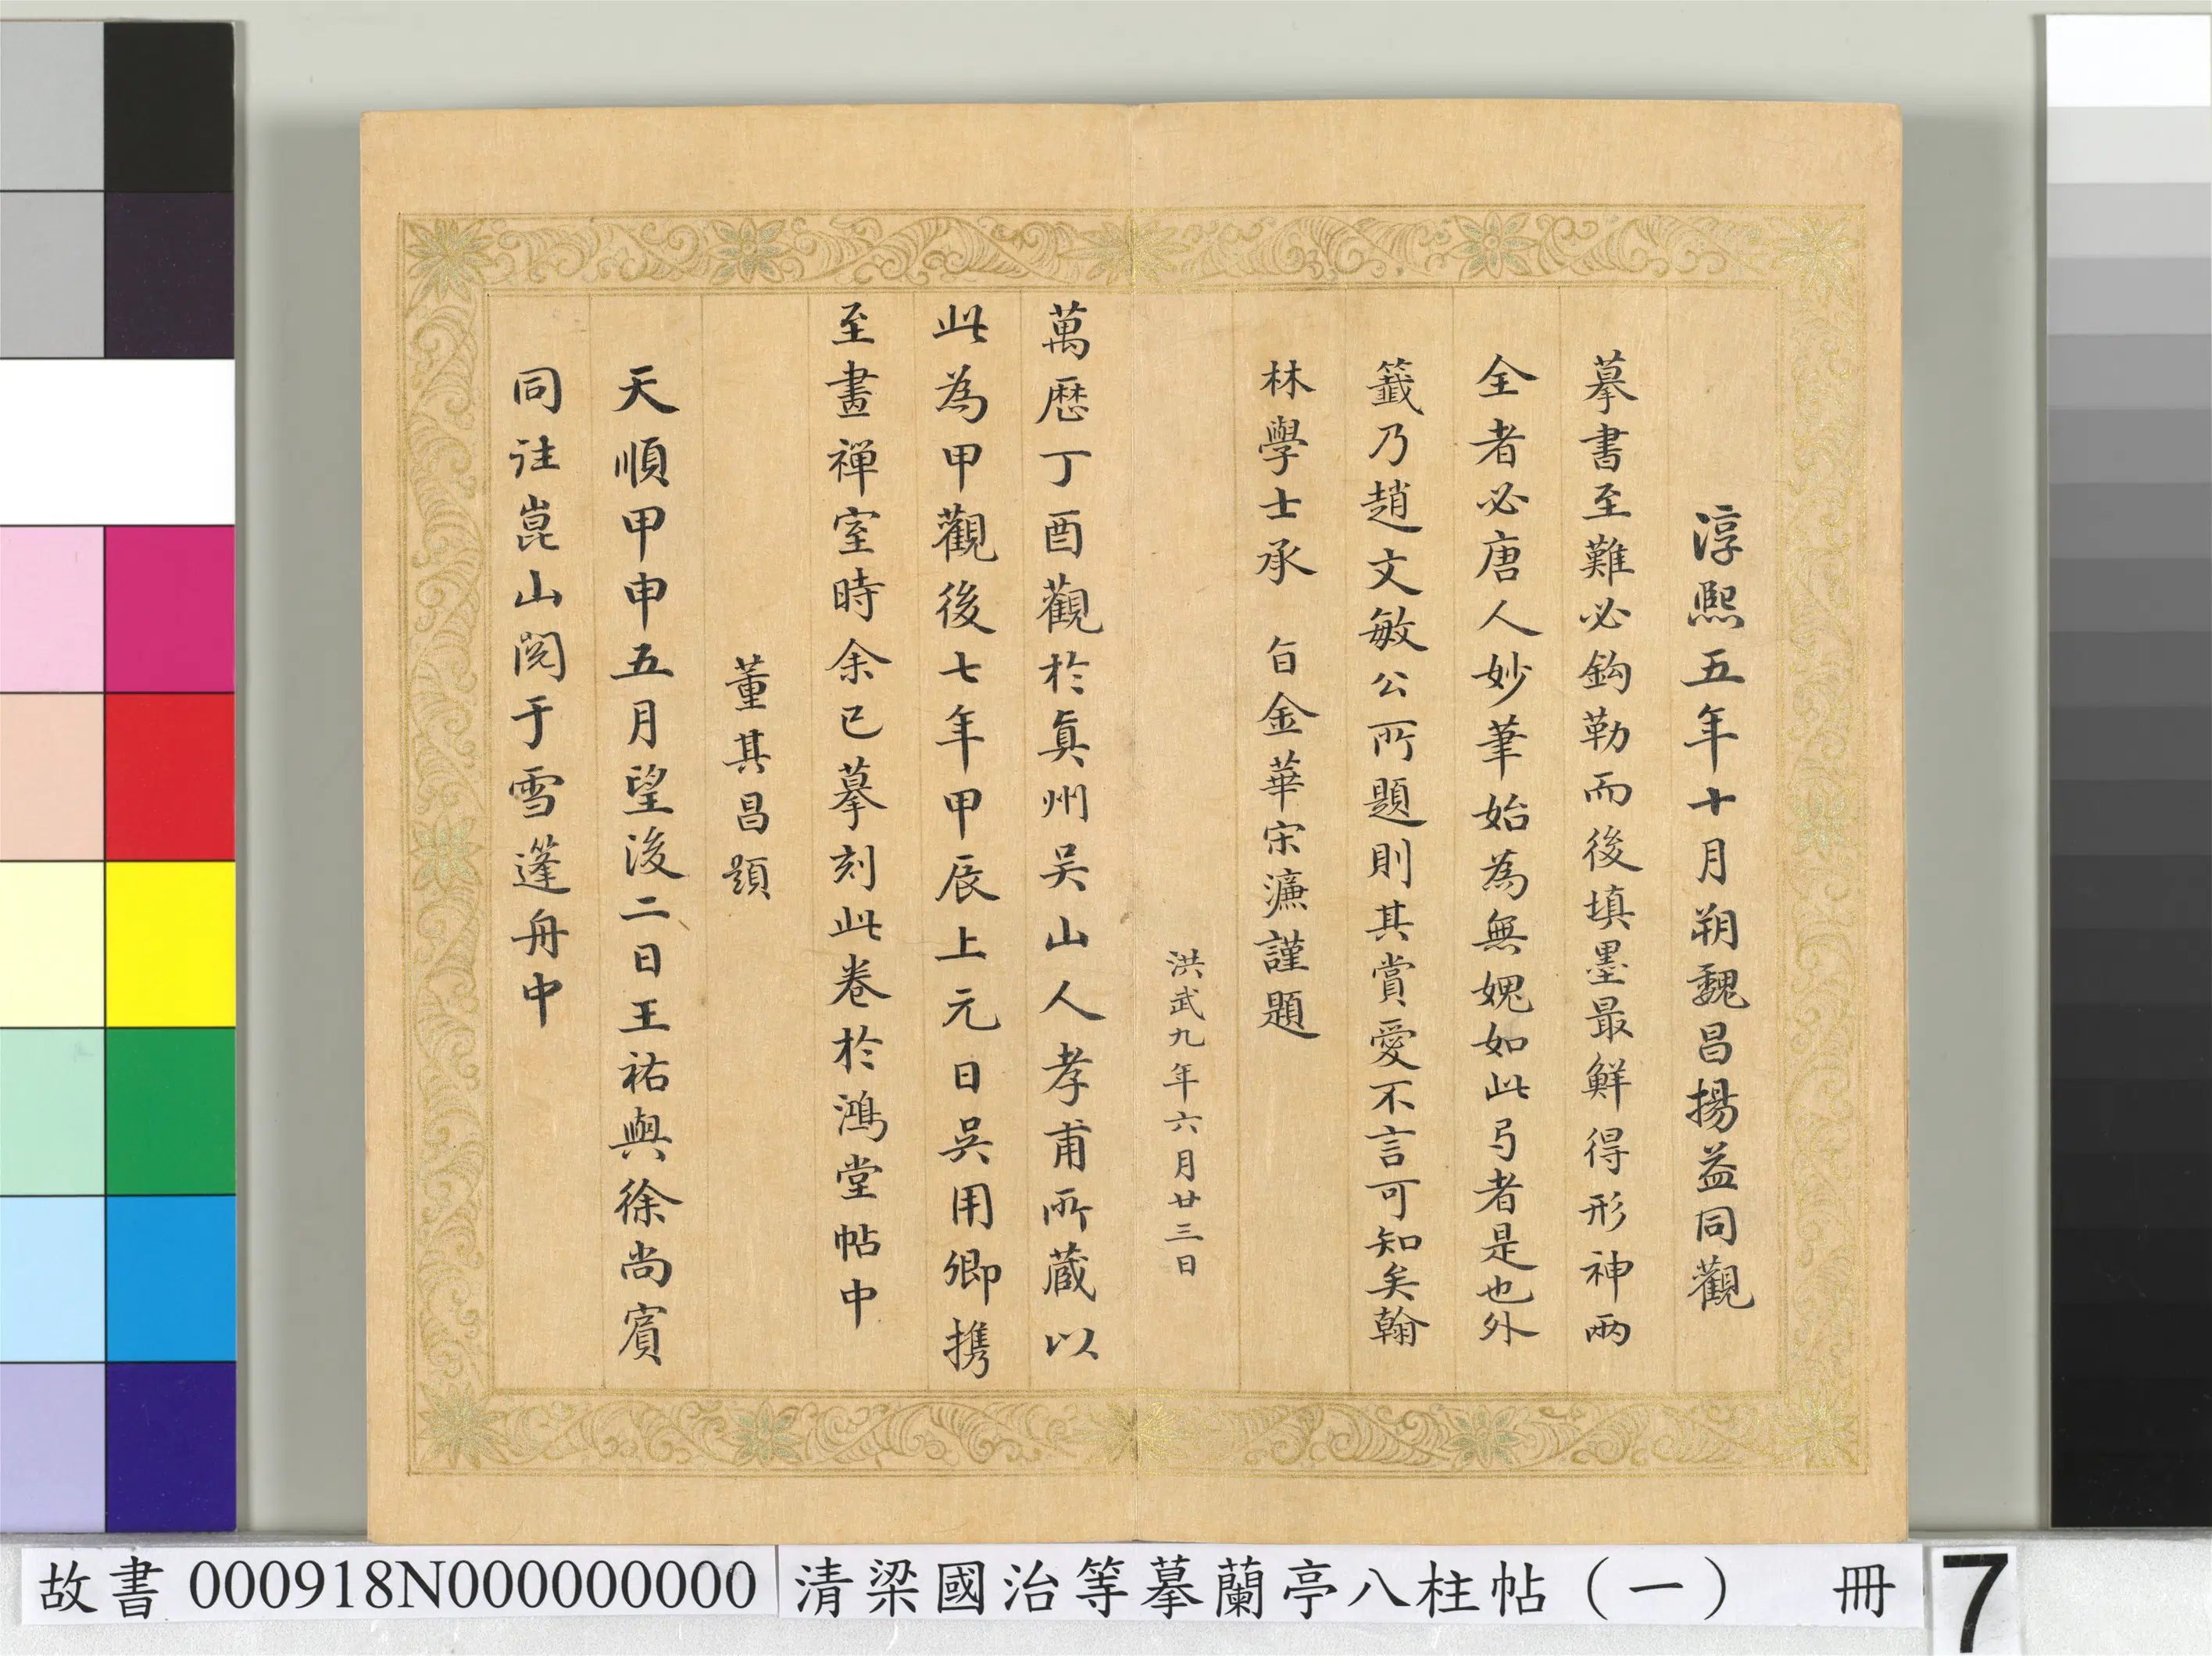 淳熙五年十月朔魏昌揚益同觀
摹書至難必鈎勒而後填墨最鮮得形神兩
全者必唐人妙筆始為無媿如此弓者是也外
籤乃趙文敏公所題則其賞愛不言可知矣翰
林學士承 旨金華宋濂謹題
洪武九年六月廿三日
萬歷丁酉觀於真州吴山人孝甫所蔵以
此為甲觀後七年甲辰上元日吴用卿携
至畫禪室時余已摹刻此卷於鴻堂帖中
董其昌題
天順甲申五月望後二日王祐與徐尚賓
同往崑山閱于雪篷舟中
故書 000918N000000000 清梁國治等摹蘭亭八柱帖（一） 冊 7